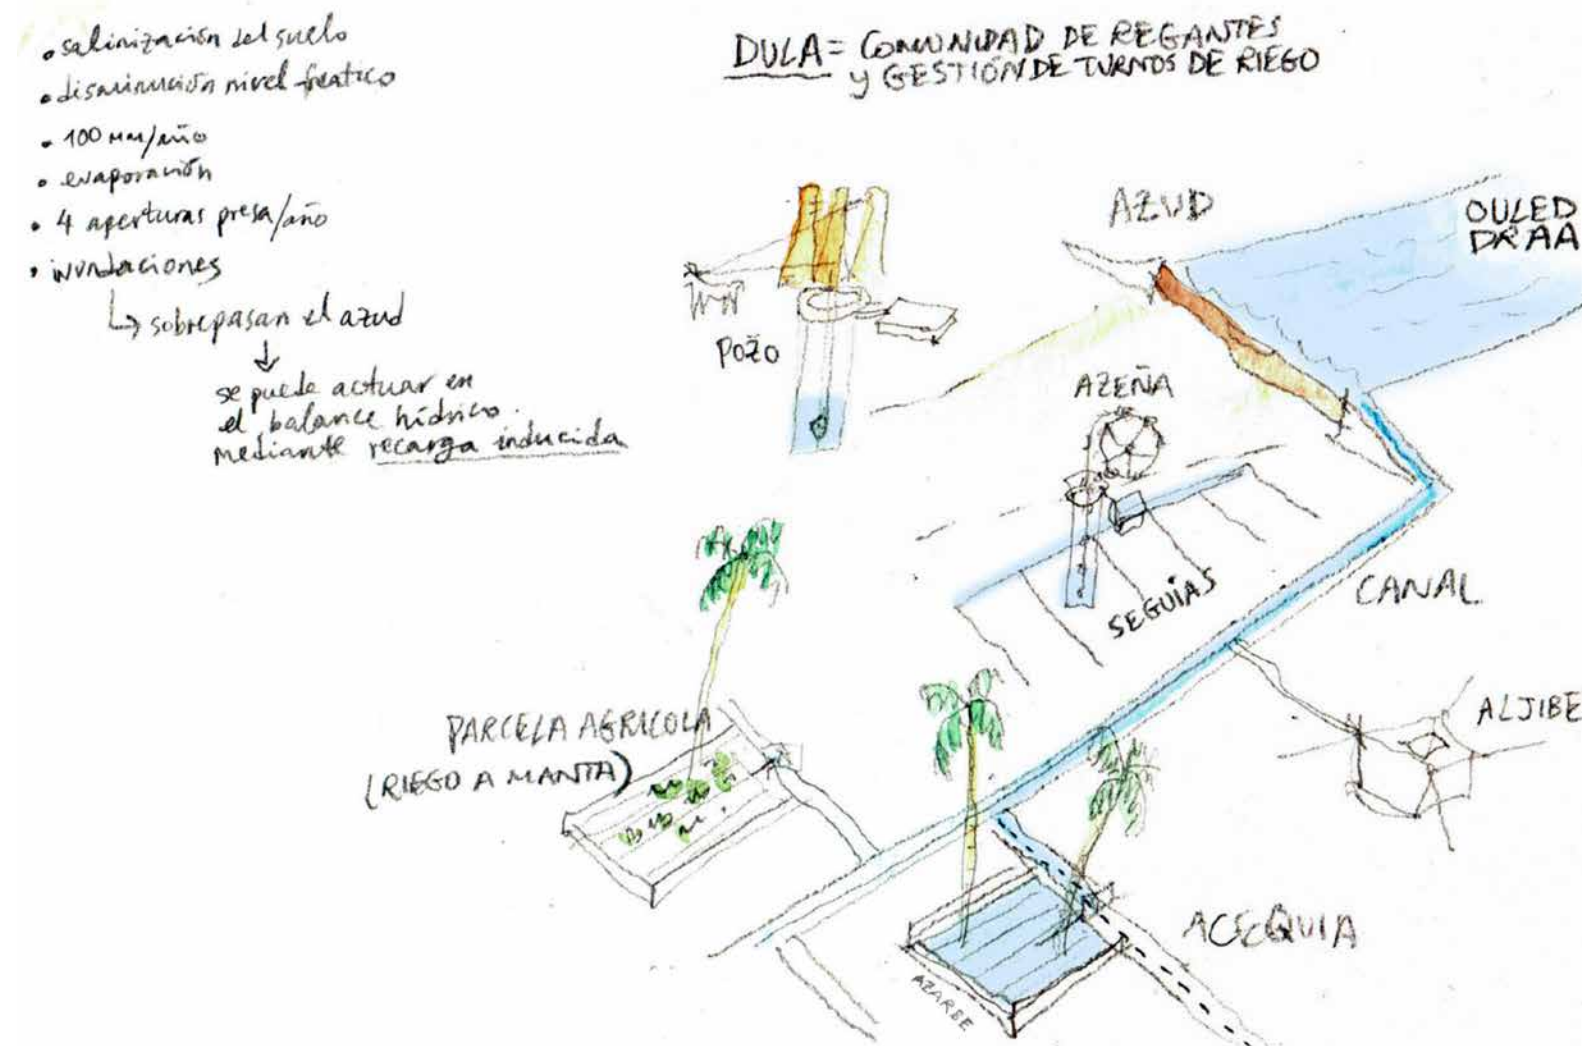 • salinización del suelo
• disminución nivel freático
• 100 mm/año
• evaporación
• 4 aperturas presa/año
• inundaciones
↳ sobrepasan el azud
↓
se puede actuar en
el balance hídrico.
mediante recarga inducida
DULA = COMUNIDAD DE REGANTES
y GESTIÓN DE TURNOS DE RIEGO
AZUD
OULED
DRAA
POZO
AZEÑA
SEGUIAS
CANAL
ALJIBE
PARCELA AGRICOLA
(RIEGO A MANTA)
ACEQUIA
AZARBE